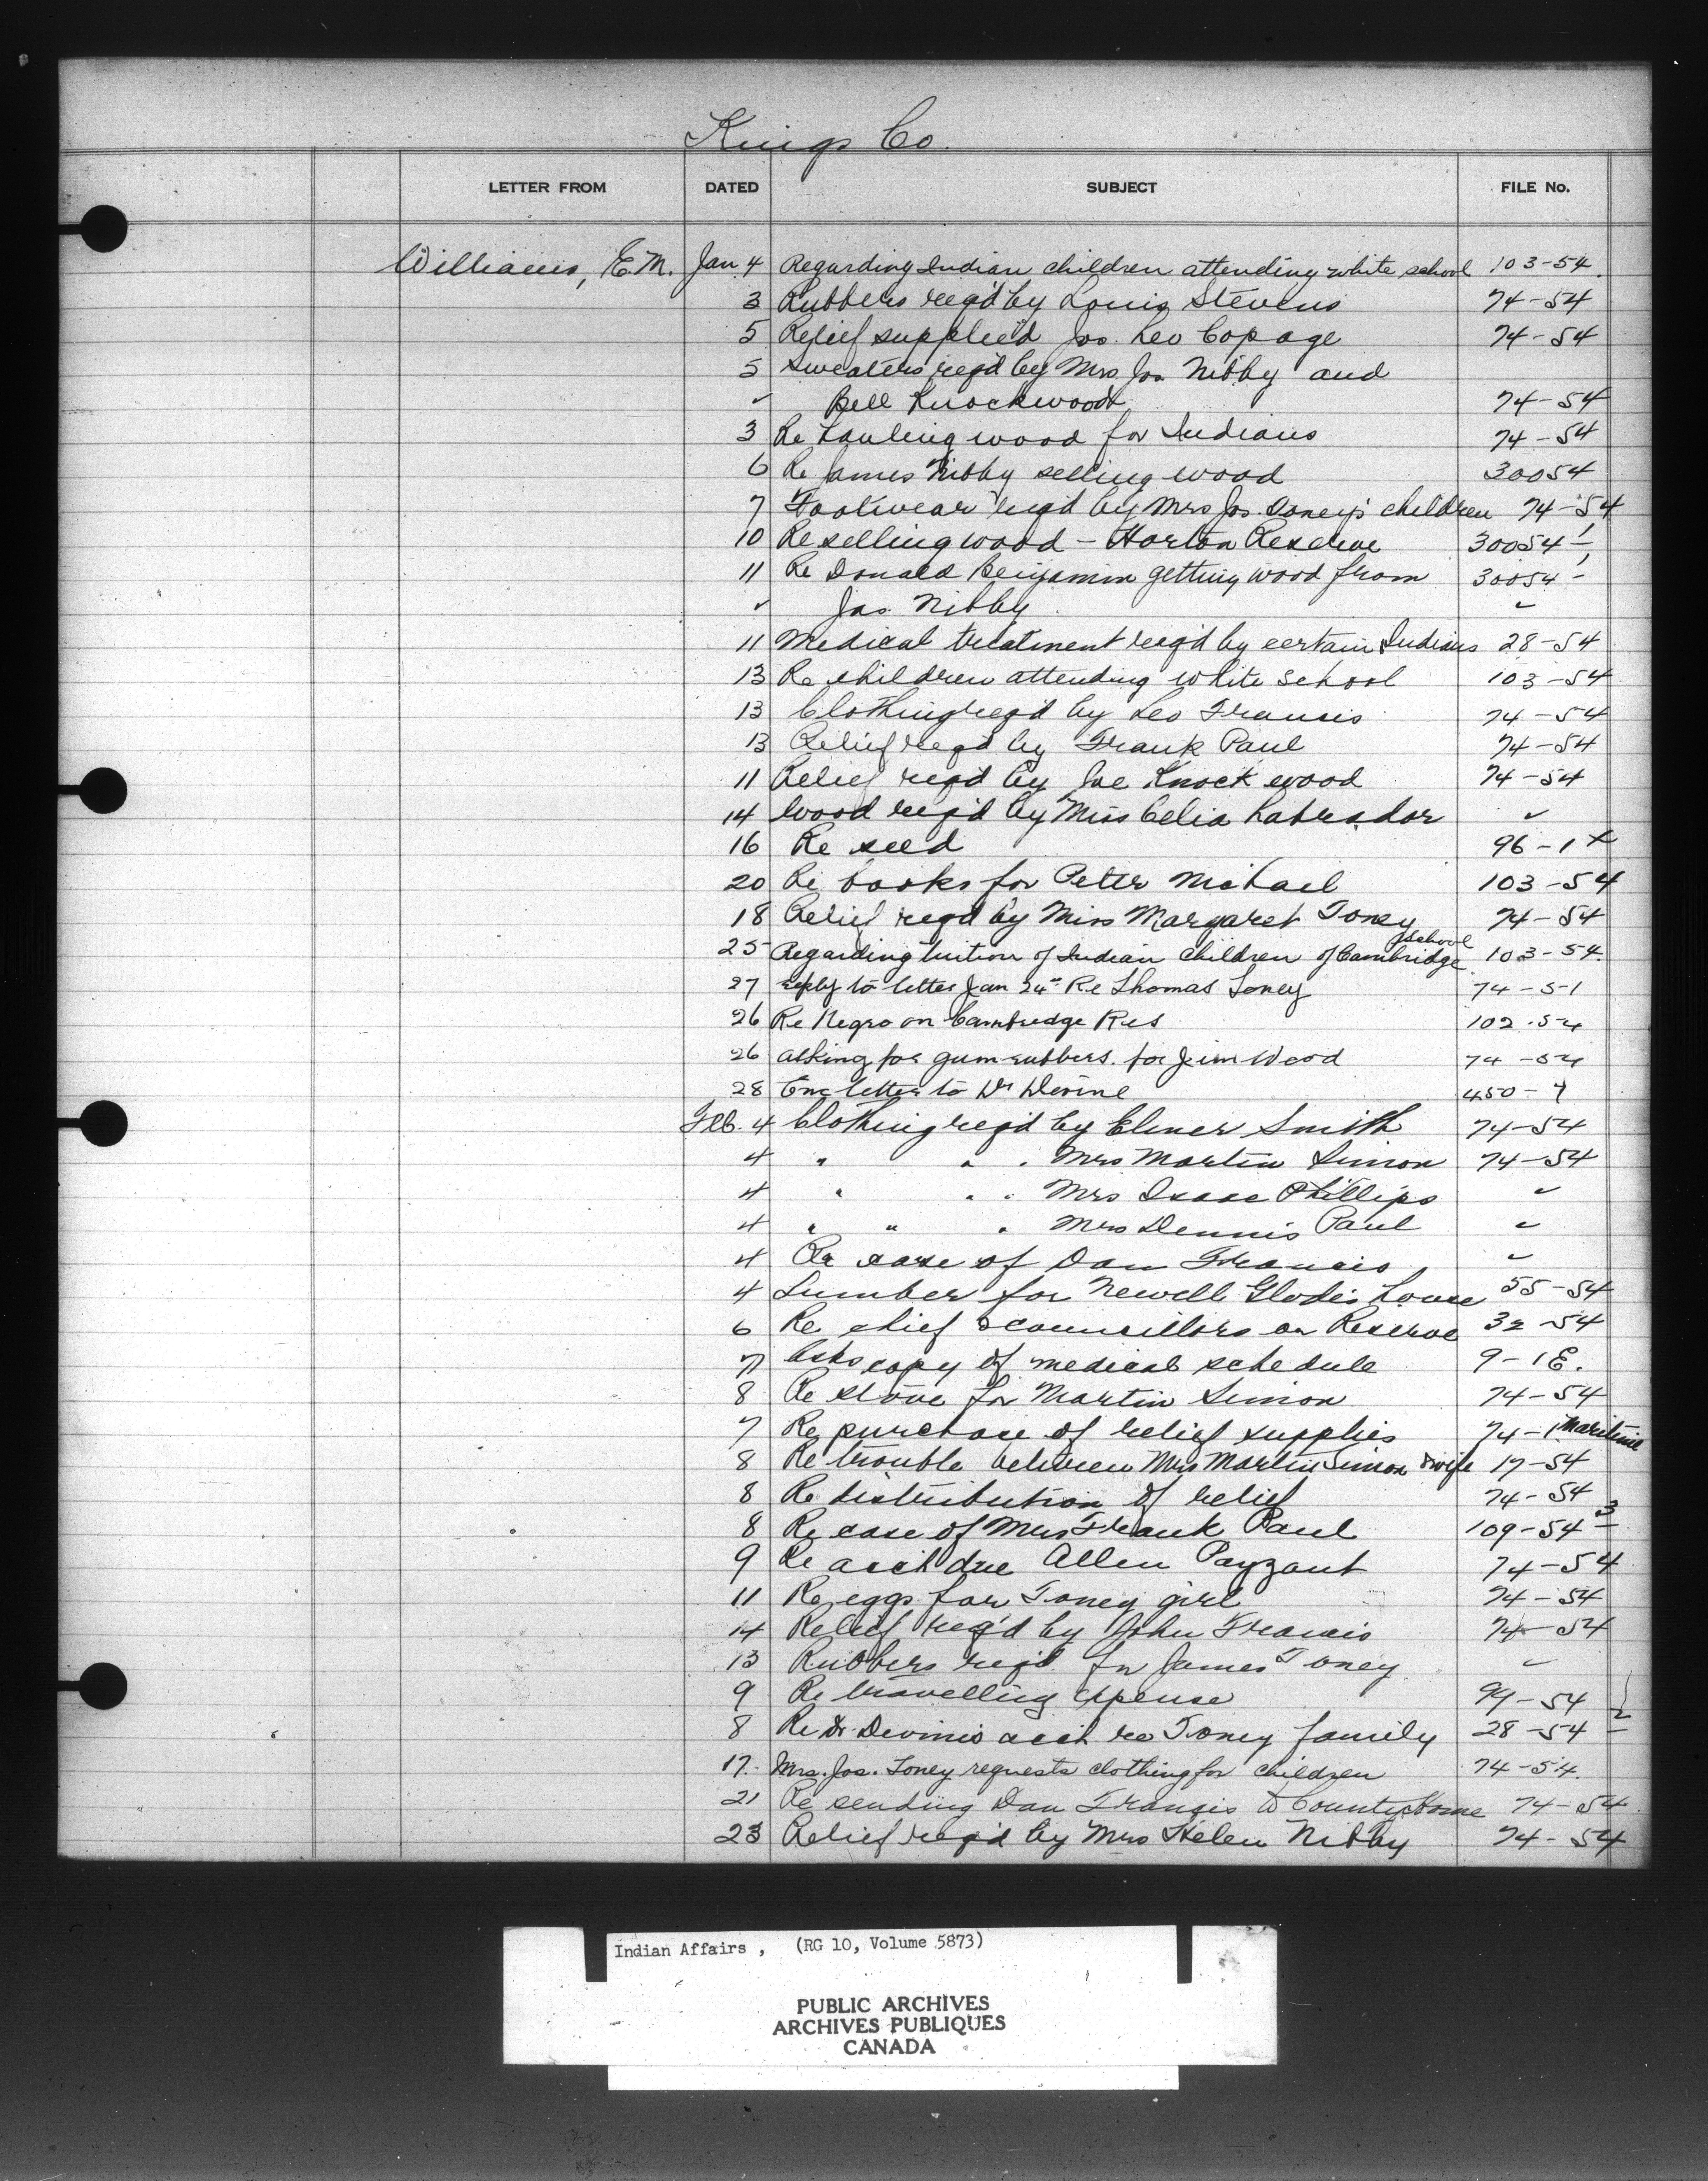 Kings Co.
LETTER FROM DATED SUBJECT FILE No.
Williams, E.M. Jan 4 Regarding Indian children attending white school 103-54
3 Rubbers req'd by Louis Stevens 74-54
5 Relief supplied Jos. Leo Copage 74-54
5 Sweaters req'd by Mrs Jos Nibby and
✓ Bell Knockwood 74-54
3 Re hauling wood for Indians 74-54
6 Re James Nibby selling wood 30054
7 Footwear req'd by Mrs Jos. Toney's children 74-54
10 Re selling wood - Horton Reserve 30054-1
11 Re Donald Benjamin getting wood from 30054-1
✓ Jas. Nibby ✓
11 Medical treatment req'd by certain Indians 28-54
13 Re children attending white school 103-54
13 Clothing req'd by Leo Francis 74-54
13 Relief req'd by Frank Paul 74-54
11 Relief req'd by Joe Knockwood 74-54
14 Wood req'd by Miss Celia Labrador ✓
16 Re seed 96-1x
20 Re books for Peter Michael 103-54
18 Relief req'd by Miss Margaret Toney 74-54
25 Regarding tuition of Indian children of Cambridge school 103-54
27 reply to letter Jan 24" Re Thomas Toney 74-51
26 Re Negro on Cambridge Res 102-54
26 asking for gum-rubbers for Jim Wood 74-54
28 Enc letter to Dr Devine 450-7
Feb. 4 Clothing req'd by Elmer Smith 74-54
4 " " " Mrs Martin Simon 74-54
4 " " " Mrs Isaac Phillips ✓
4 " " " Mrs Dennis Paul ✓
4 Re case of Dan Francis ✓
4 Lumber for Newell Glode's house 55-54
6 Re chief & councillors on Reserve 32-54
7 Asks copy of medical schedule 9-1E.
8 Re stove for Martin Simon 74-54
7 Re purchase of relief supplies 74-1 Maritime
8 Re trouble between Mrs Martin Simon & wife 17-54
8 Re distribution of relief 74-54
8 Re case of Mrs Frank Paul 109-54-3
9 Re acct due Allen Payzant 74-54
11 Re eggs for Toney girl 74-54
14 Relief req'd by John Francis 74-54
13 Rubbers req'd for James Toney ✓
9 Re travelling expense 99-54
8 Re Dr. Devine's acct re Toney family 28-54-2
17. Mrs. Jos. Toney requests clothing for children 74-54.
21 Re sending Dan Francis to County Home 74-54
23 Relief req'd by Mrs Helen Nibby 74-54
Indian Affairs , (RG 10, Volume 5873)
PUBLIC ARCHIVES
ARCHIVES PUBLIQUES
CANADA